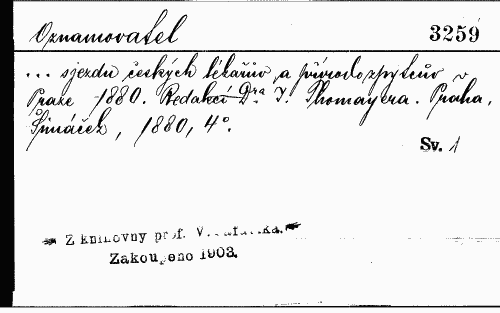 Oznamovatel 3259
... sjezdu českých lékařův a přírodozpytcův v
Praze 1880. Redakcí Dra J. Thomayera. Praha,
Šimáček, 1880, 4°.
Sv. 1
Z knihovny prof. V.
Zakoupeno 1903.